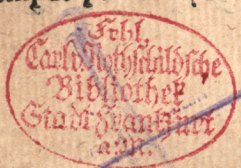 Frhl.
Carl v. Rothschildsche
Bibliothek
Stadt Frankfurt
a. M.